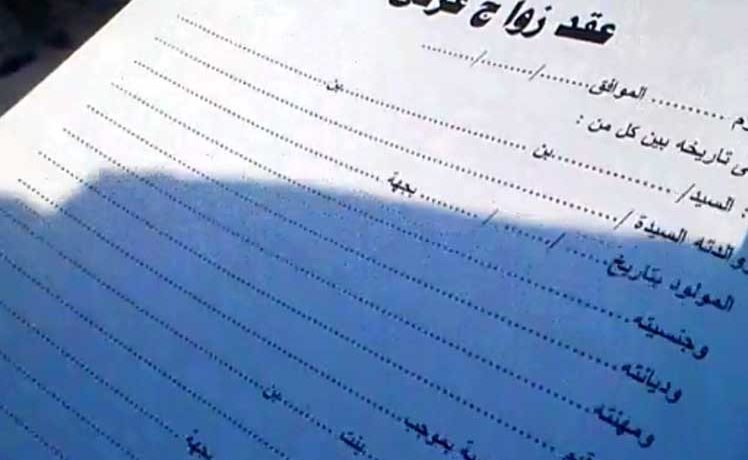 عقد زواج عرفى
......... الموافق ....../....../......
تاريخه بين كل من :
السيد/ .................. بن .................. بن ..................
والدته السيدة / ..................
المولود بتاريخ ....../....../...... بجهة ..................
وجنسيته ..................
وديانته ..................
ومهنته ..................
بموجب ..................
بنت .......... بن ..........
بجهة ..................